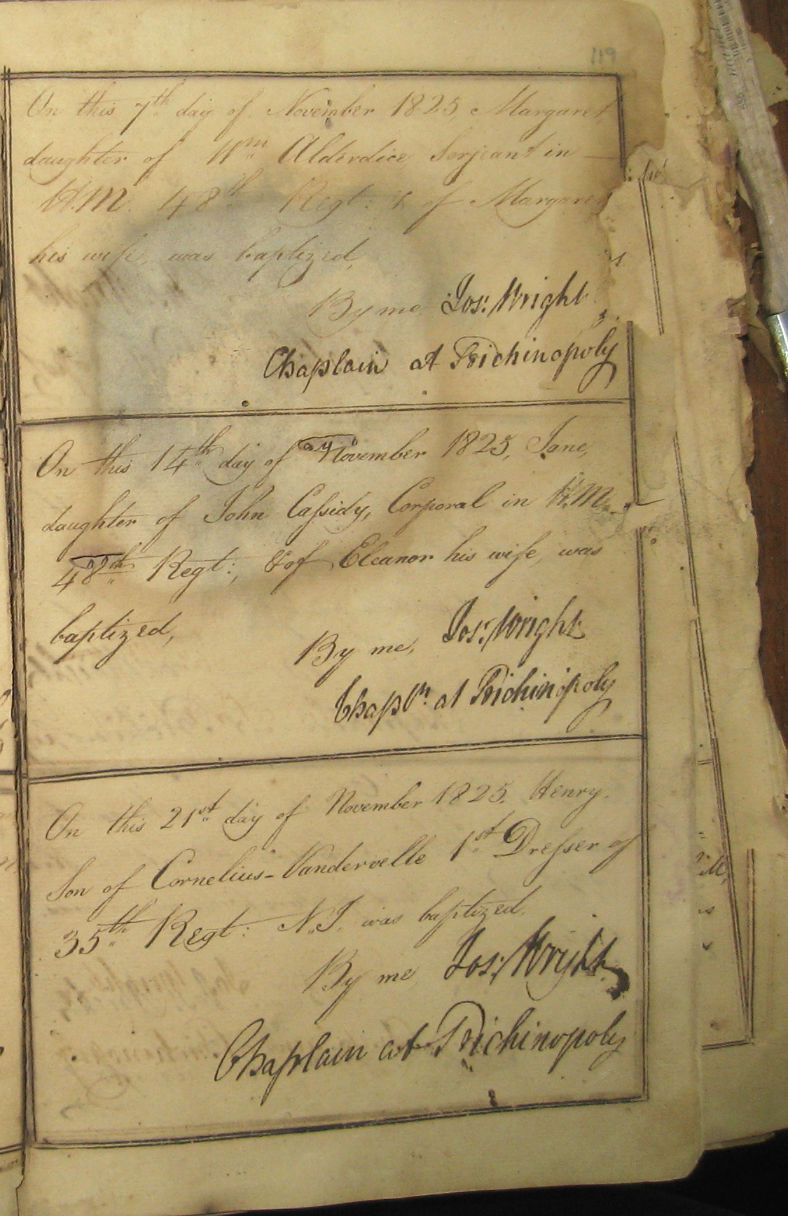 119
On this 7th day of November 1825, Margaret
daughter of Wm Alderdice Serjeant in
H.M. 48th Regt: & of Margaret
his wife, was baptized,
By me Jos: Wright
Chaplain at Trichinopoly
On this 14th day of November 1825, Jane,
daughter of John Cassidy, Corporal in H.M.
48th Regt:, & of Eleanor his wife, was
baptized,
By me, Jos: Wright
Chapln at Trichinopoly
On this 21st day of November 1825, Henry
Son of Cornelius Vandervelle 1st Dresser of
35th Regt: N.I. was baptized,
By me Jos: Wright
Chaplain at Trichinopoly